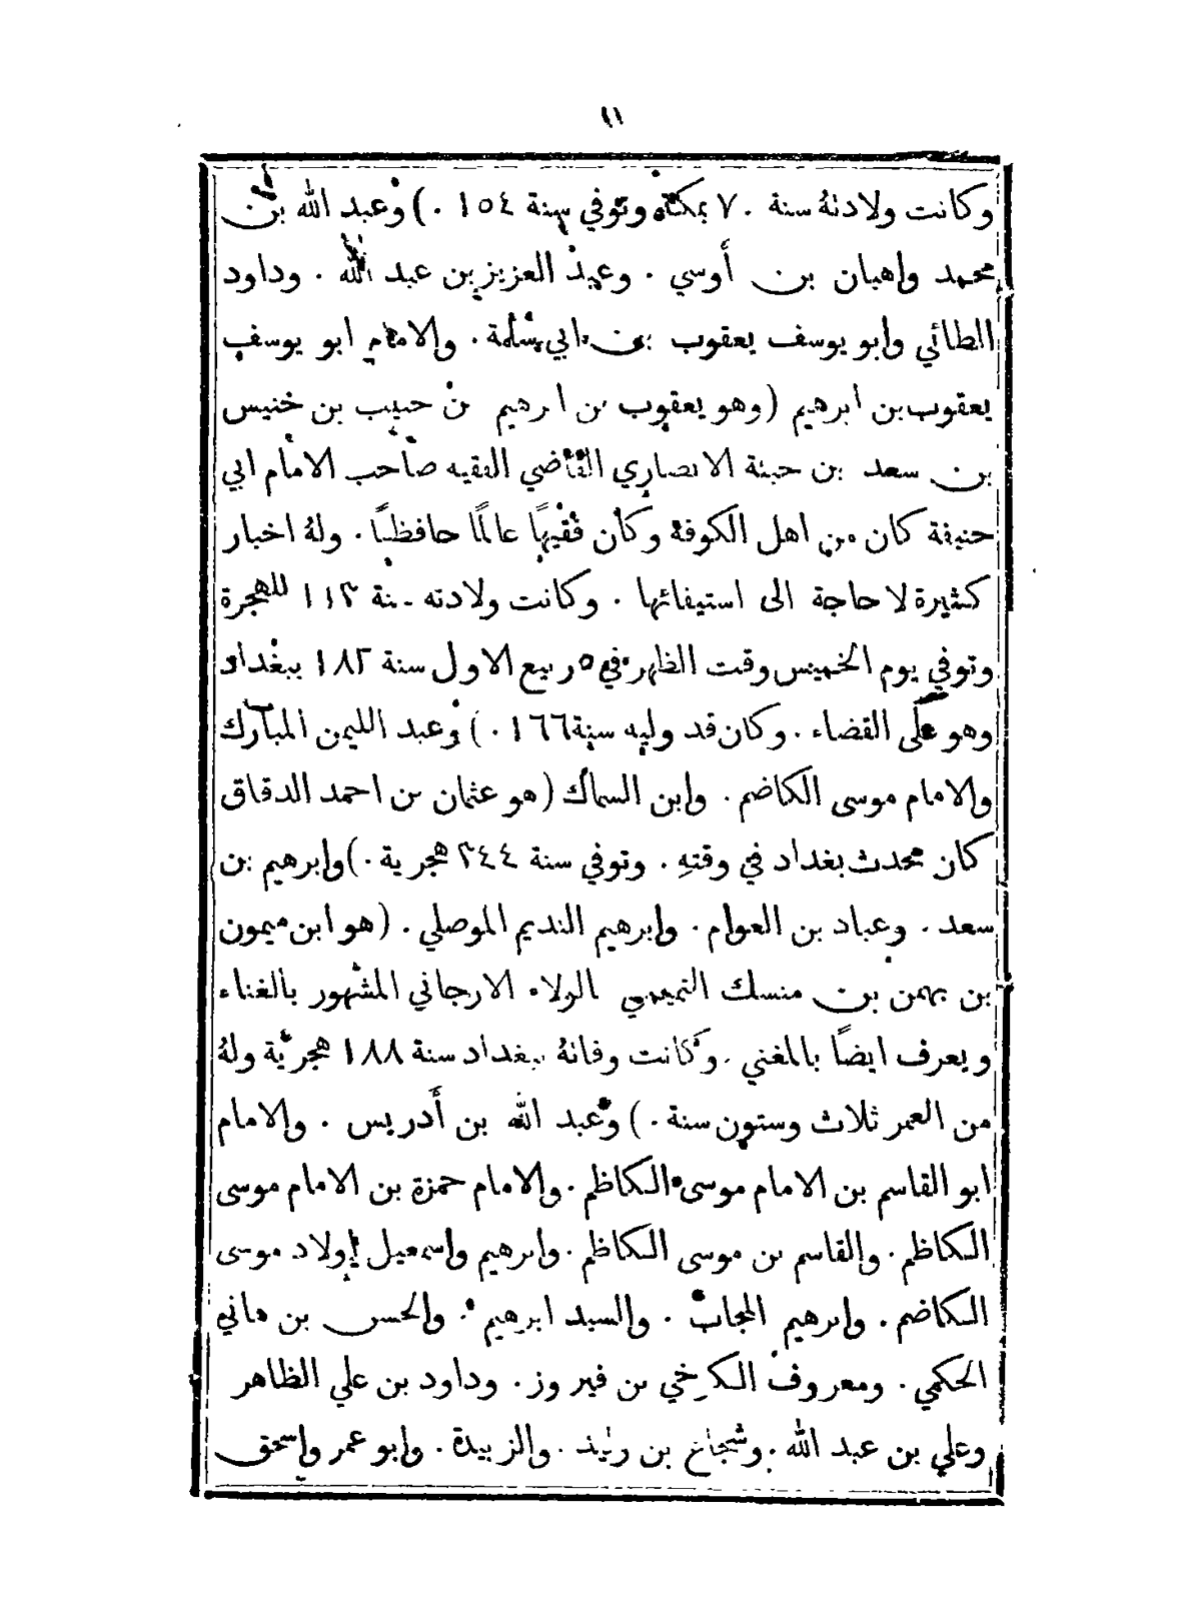 ١١
وكانت ولادتهُ سنة ٧٠ بمكة وتوفي سنة ١٥٤ .) وعبد الله بن
محمد واهبان بن أوسي . وعبد العزيز بن عبد الله . وداود
الطائي وابو يوسف يعقوب بن ابي سلمة . والامام ابو يوسف
يعقوب بن ابرهيم (وهو يعقوب بن ابرهيم بن حبيب بن خنيس
بن سعد بن حبتة الانصاري القاضي الفقيه صاحب الامام ابي
حنيفة كان من اهل الكوفة وكان فقيهًا عالمًا حافظًا . ولهُ اخبار
كثيرة لا حاجة الى استيفائها . وكانت ولادته سنة ١١٣ للهجرة
وتوفي يوم الخميس وقت الظهر في ٥ ربيع الاول سنة ١٨٢ ببغداد
وهو على القضاء . وكان قد وليه سنة ١٦٦ .) وعبد الليمن المبارك
والامام موسى الكاضم . وابن السماك (هو عثمان بن احمد الدقاق
كان محدث بغداد في وقتهِ . وتوفي سنة ٣٤٤ هجرية .) وابرهيم بن
سعد . وعباد بن العوام . وابرهيم النديم الموصلي . (هو ابن ميمون
بن بهمن بن منسك التميمي بالولاء الارجاني المشهور بالغناء
ويعرف ايضًا بالمغني . وكانت وفاتهُ ببغداد سنة ١٨٨ هجرية ولهُ
من العمر ثلاث وستون سنة .) وعبد الله بن أدريس . والامام
ابو القاسم بن الامام موسى الكاظم . والامام حمزة بن الامام موسى
الكاظم . والقاسم بن موسى الكاظم . وابرهيم واسمعيل اولاد موسى
الكاضم . وابرهيم المجاب . والسيد ابرهيم . والحسن بن هاني
الحكمي . ومعروف الكرخي بن فيروز . وداود بن علي الظاهر
وعلي بن عبد الله . وشجاع بن . والزبيدة . وابو عمر واسحق